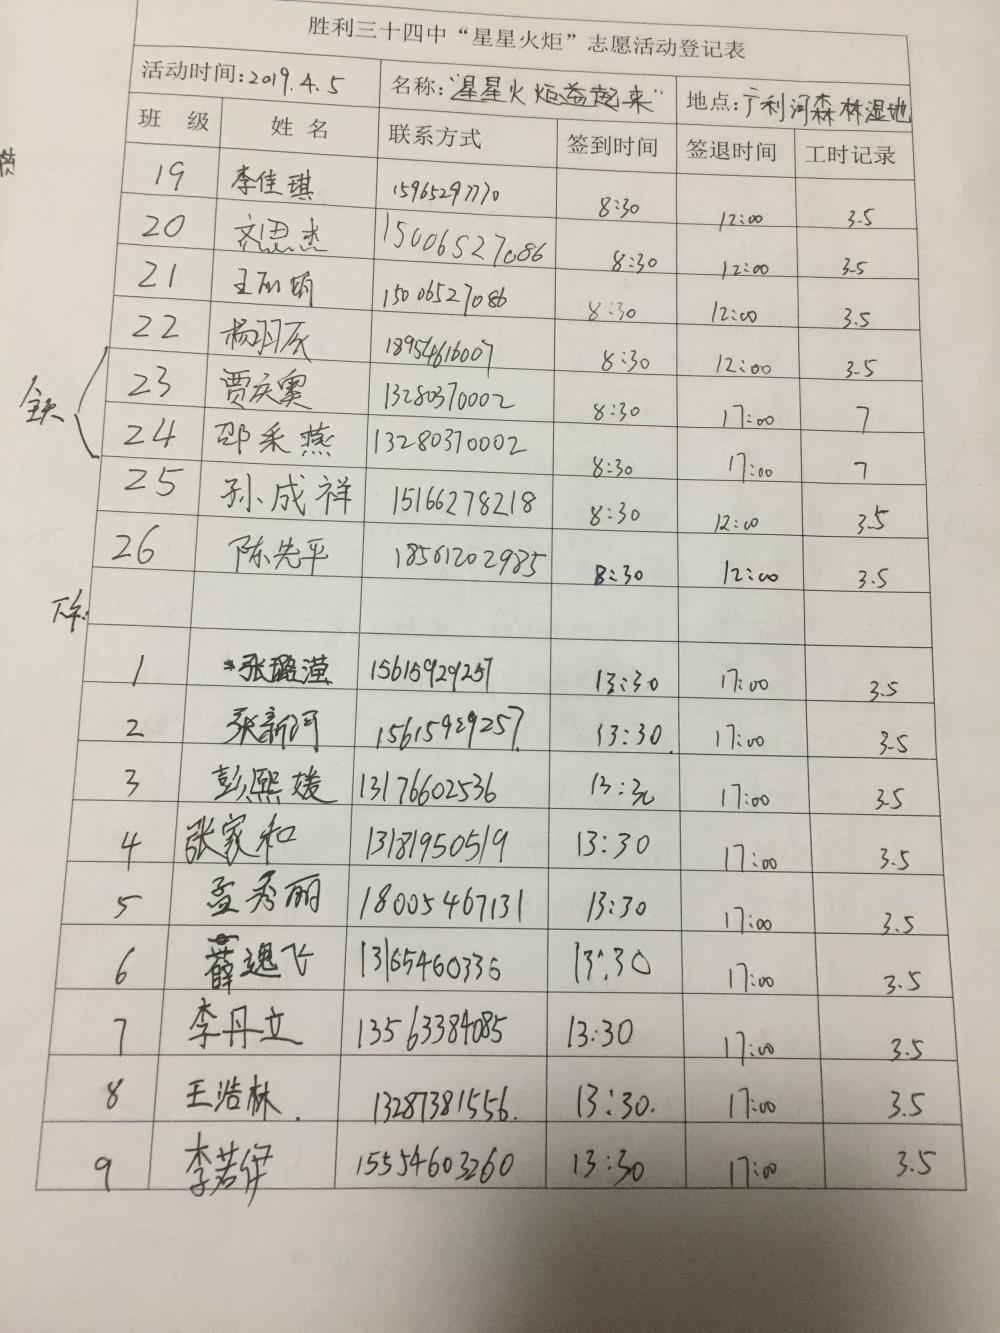 胜利三十四中“星星火炬”志愿活动登记表
活动时间:2019.4.5 名称:“星星火炬益起来” 地点:广利河森林湿地
班 级 姓 名 联系方式 签到时间 签退时间 工时记录
19 李佳琪 15965297770 8:30 12:00 3.5
20 文思杰 15006527086 8:30 12:00 3.5
21 王 15006527086 8:30 12:00 3.5
22 杨羽辰 18954616007 8:30 12:00 3.5
23 贾庆 13280370002 8:30 17:00 7
全天
24 邵采燕 13280370002 8:30 17:00 7
25 孙成祥 15166278218 8:30 12:00 3.5
26 陈先平 18561202985 8:30 12:00 3.5
下午:
1 张璐滢 15615929257 13:30 17:00 3.5
2 张新河 15615929257 13:30 17:00 3.5
3 彭熙媛 13176602536 13:30 17:00 3.5
4 张家和 13181950519 13:30 17:00 3.5
5 孟秀丽 18005467131 13:30 17:00 3.5
6 薛逸飞 13165460336 13:30 17:00 3.5
7 李丹立 13563384085 13:30 17:00 3.5
8 王浩林. 13287381556. 13:30. 17:00 3.5
9 李若伊 15554603260 13:30 17:00 3.5